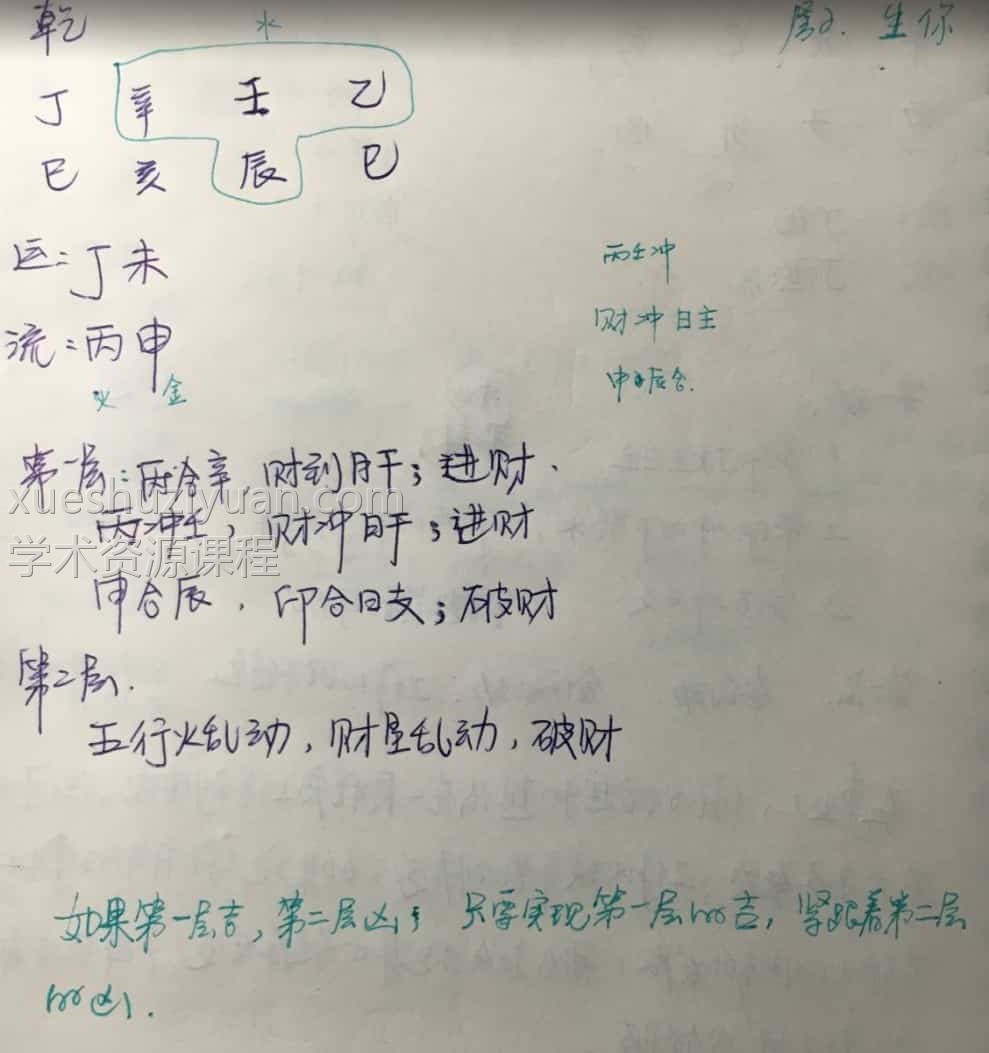 乾 水 生你
丁 辛 壬 乙
巳 亥 辰 巳
运:丁未
丙壬冲
流:丙申
财冲日主
火 金
申辰合.
第一层:丙合辛,财到月干;进财.
xueshuziyuan.com
丙冲壬,财冲日干;进财
学术资源课程
申合辰,印合日支;破财
第二层.
五行火乱动,财星乱动,破财
如果第一层吉,第二层凶; 只要实现第一层的吉,紧跟着第二层
的凶.